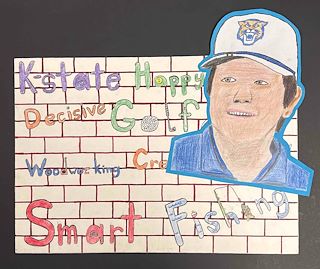 K-state Happy
Decisive Golf
Woodworking
Smart Fishing